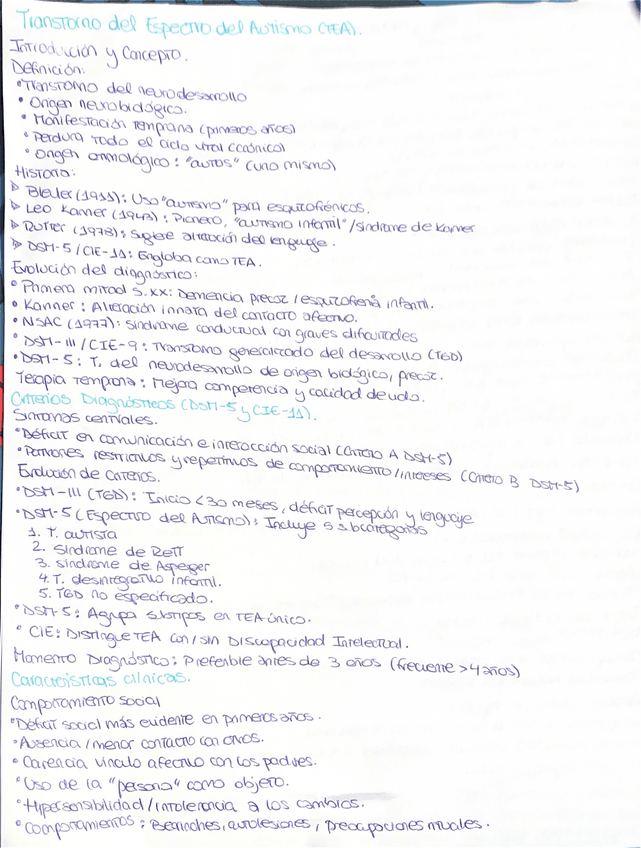 Transtorno del Espectro del Autismo (TEA).
Introducción y Concepto.
Definición:
• Transtorno del neurodesarrollo
• Origen neurobiológico.
• Manifestación temprana (primeros años)
• Perdura todo el ciclo vital (crónico)
• Origen etimológico: "autos" (uno mismo)
Historia:
▷ Bleuler (1911): Uso "autismo" para esquizofrénicos.
▷ Leo Kanner (1943): Pionero, "autismo infantil"/síndrome de Kanner
▷ Rutter (1978): Sugiere alteración del lenguaje.
▷ DSM-5 / CIE-11: Engloba como TEA.
Evolución del diagnóstico:
• Primera mitad S.XX: Demencia precoz / esquizofrenia infantil.
• Kanner: Alteración innata del contacto afectivo.
• NSAC (1977): Síndrome conductual con graves dificultades
• DSM-III / CIE-9: Transtorno generalizado del desarrollo (TGD)
• DSM-5: T. del neurodesarrollo de origen biológico, precoz.
Terapia temprana: Mejora competencia y calidad de vida.
Criterios Diagnósticos (DSM-5 y CIE-11).
Síntomas centrales.
• Déficit en comunicación e interacción social (Criterio A DSM-5)
• Patrones restrictivos y repetitivos de comportamiento/intereses (Criterio B DSM-5)
Evolución de Criterios.
• DSM-III (TGD): Inicio <30 meses, déficit percepción y lenguaje
• DSM-5 (Espectro del Autismo): Incluye 5 subcategorías
1. T. autista
2. Síndrome de Rett
3. síndrome de Asperger
4. T. desintegrativo infantil.
5. TGD no especificado.
• DSM-5: Agrupa subtipos en TEA único.
• CIE: Distingue TEA con/sin Discapacidad Intelectual.
Momento Diagnóstico: Preferible antes de 3 años (frecuente >4 años)
Características clínicas.
Comportamiento social
• Déficit social más evidente en primeros años.
• Ausencia/menor contacto con otros.
• Carencia vínculo afectivo con los padres.
• Uso de la "persona" como objeto.
• Hipersensibilidad/intolerancia a los cambios.
• Comportamientos: Berrinches, autolesiones, preocupaciones rituales.